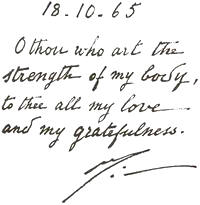 18.10.65
O thou who art the
strength of my body,
to thee all my love
and my gratefulness.